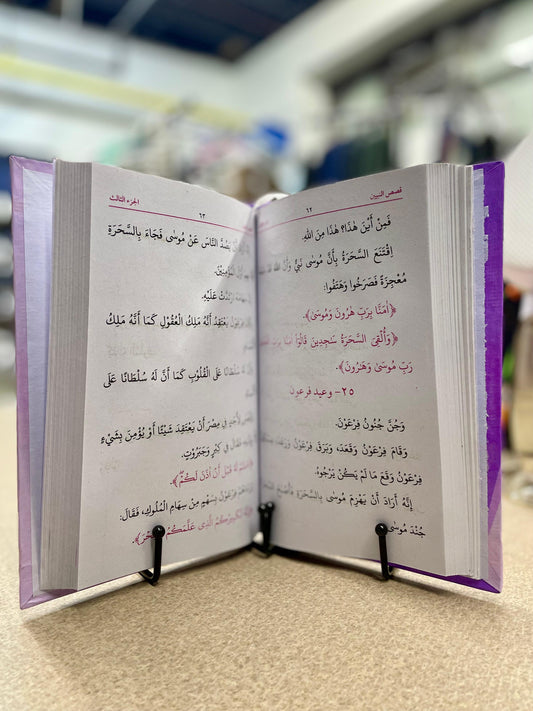 قصص النبيين
٦٢
فَمِنْ أَيْنَ هٰذَا؟ هٰذَا مِنَ اللّٰهِ.
اِقْتَنَعَ السَّحَرَةُ بِأَنَّ مُوسٰى نَبِيٌّ وَأَنَّ اللّٰهَ
مُعْجِزَةً فَصَرَخُوا وَهَتَفُوا:
﴿اٰمَنَّا بِرَبِّ هٰرُونَ وَمُوسٰى﴾.
﴿وَأُلْقِيَ السَّحَرَةُ سٰجِدِينَ قَالُوٓا اٰمَنَّا بِرَبِّ
رَبِّ مُوسٰى وَهٰرُونَ﴾.
٢٥- وعيد فرعون
وَجُنَّ جُنُونُ فِرْعَوْنَ.
وَقَامَ فِرْعَوْنُ وَقَعَدَ، وَبَرَقَ فِرْعَوْنُ
فِرْعَوْنُ وَقَعَ مَا لَمْ يَكُنْ يَرْجُوهُ.
إِنَّهُ أَرَادَ أَنْ يَهْزِمَ مُوسٰى بِالسَّحَرَةِ
جُنْدَ مُوسٰى
الجزء الثالث
٦٣
يَصُدَّ النَّاسَ عَنْ مُوسٰى فَجَاءَ بِالسَّحَرَةِ
عَلَيْهِ.
يَعْتَقِدُ أَنَّهُ مَلِكُ الْعُقُولِ كَمَا أَنَّهُ مَلِكُ
سُلْطَانًا عَلَى الْقُلُوبِ كَمَا أَنَّ لَهُ سُلْطَانًا عَلَى
فِي مِصْرَ أَنْ يَعْتَقِدَ شَيْئًا أَوْ يُؤْمِنَ بِشَيْءٍ
فَقَالَ فِي كِبْرٍ وَجَبَرُوتٍ.
لَهُ قَبْلَ أَنْ اٰذَنَ لَكُمْ﴾.
فِرْعَوْنُ بِسَهْمٍ مِنْ سِهَامِ الْمُلُوكِ، فَقَالَ:
لَكَبِيرُكُمُ الَّذِى عَلَّمَكُمُ السِّحْرَ﴾.